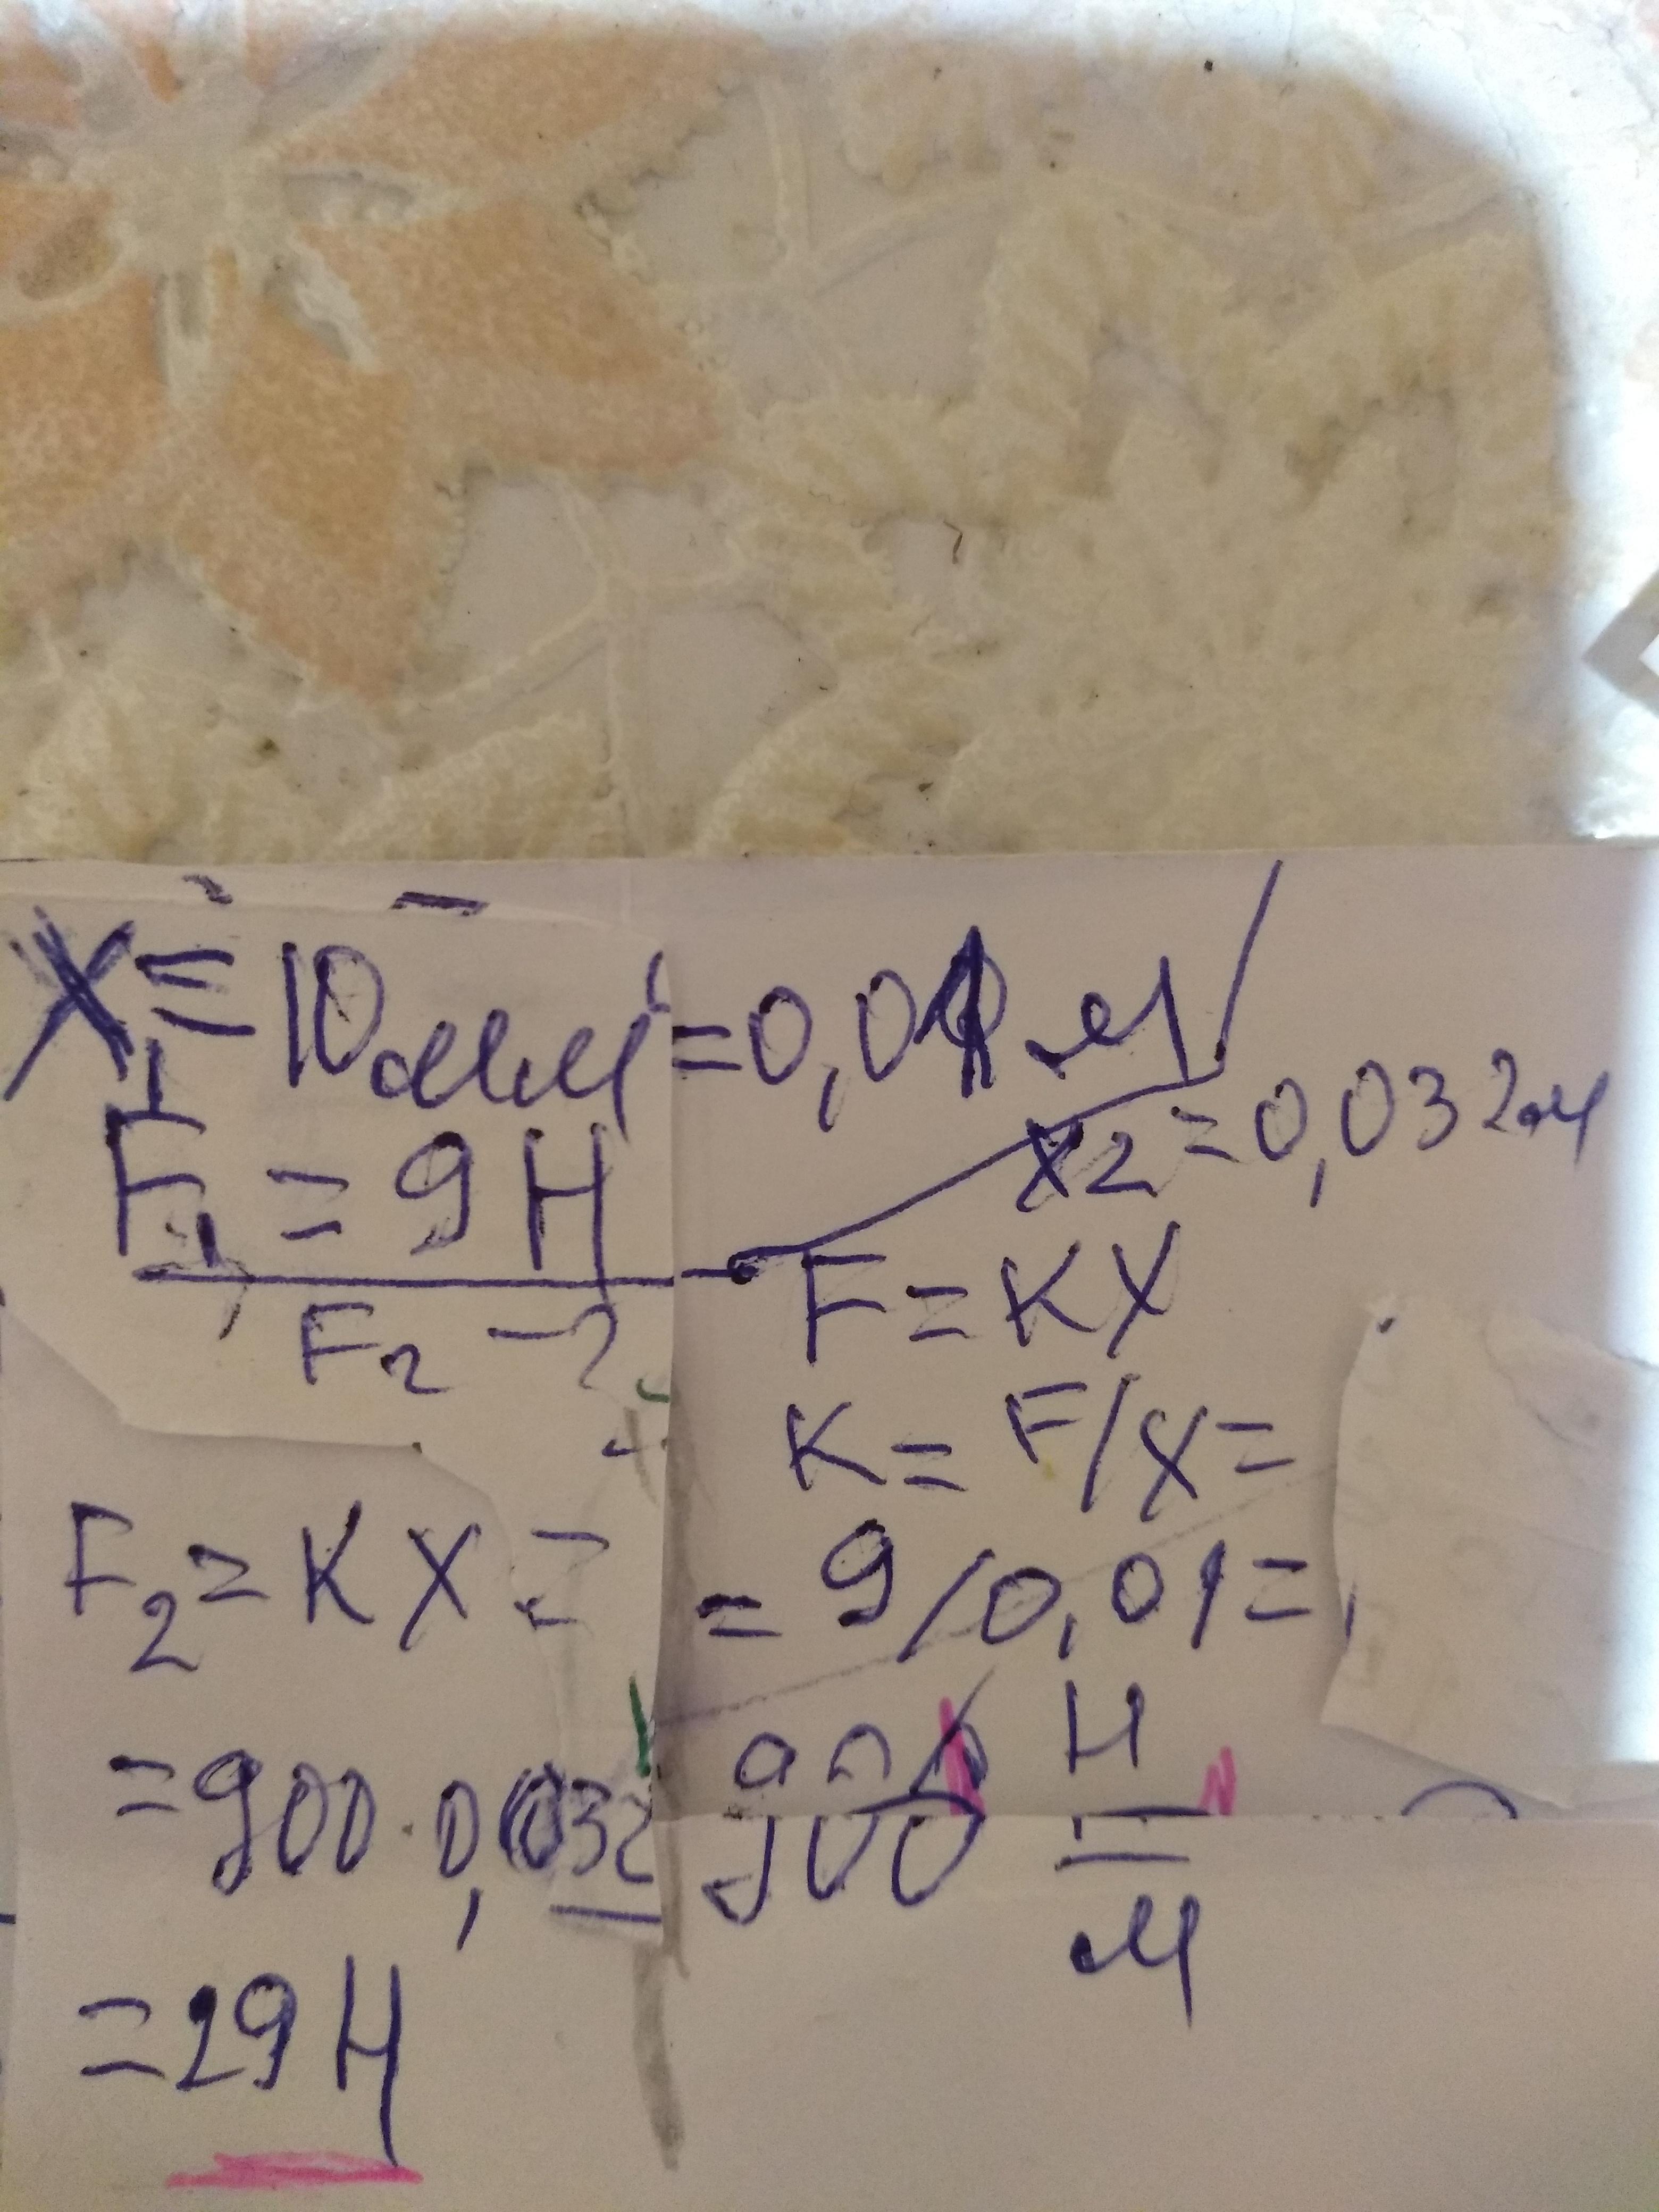 X₁ = 10 мм = 0,01 м
F₁ = 9 Н
X2 = 0,032 м
F₂ - ?
F = KX
K = F/X =
= 9/0,01 =
900 Н/м
F₂ = KX =
= 900 · 0,032
= 29 Н